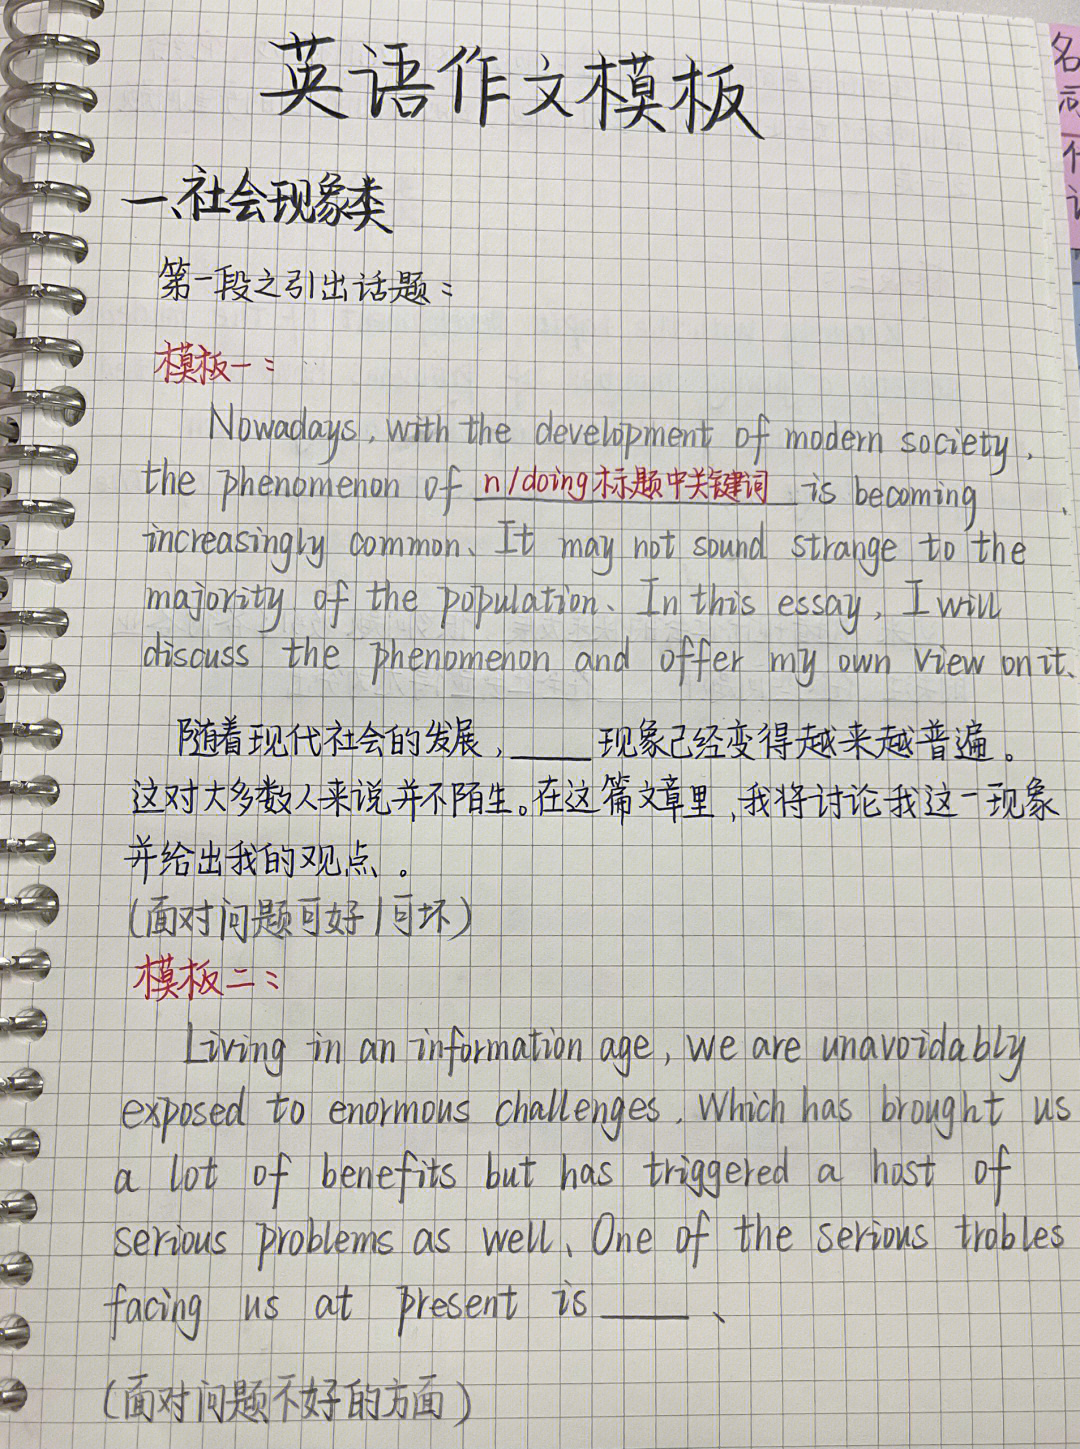 英语作文模板
一、社会现象类
第一段之引出话题：
模板一：
Nowadays, with the development of modern society,
the phenomenon of n/doing标题中关键词 is becoming
increasingly common、It may not sound strange to the
majority of the population、In this essay, I will
discuss the phenomenon and offer my own view on it、
随着现代社会的发展,____现象已经变得越来越普遍。
这对大多数人来说并不陌生。在这篇文章里,我将讨论我这一现象
并给出我的观点。
(面对问题可好/可坏)
模板二：
Living in an information age, we are unavoidably
exposed to enormous challenges, Which has brought us
a lot of benefits but has triggered a host of
serious problems as well、One of the serious trobles
facing us at present is____、
(面对问题不好的方面)
名
词
代